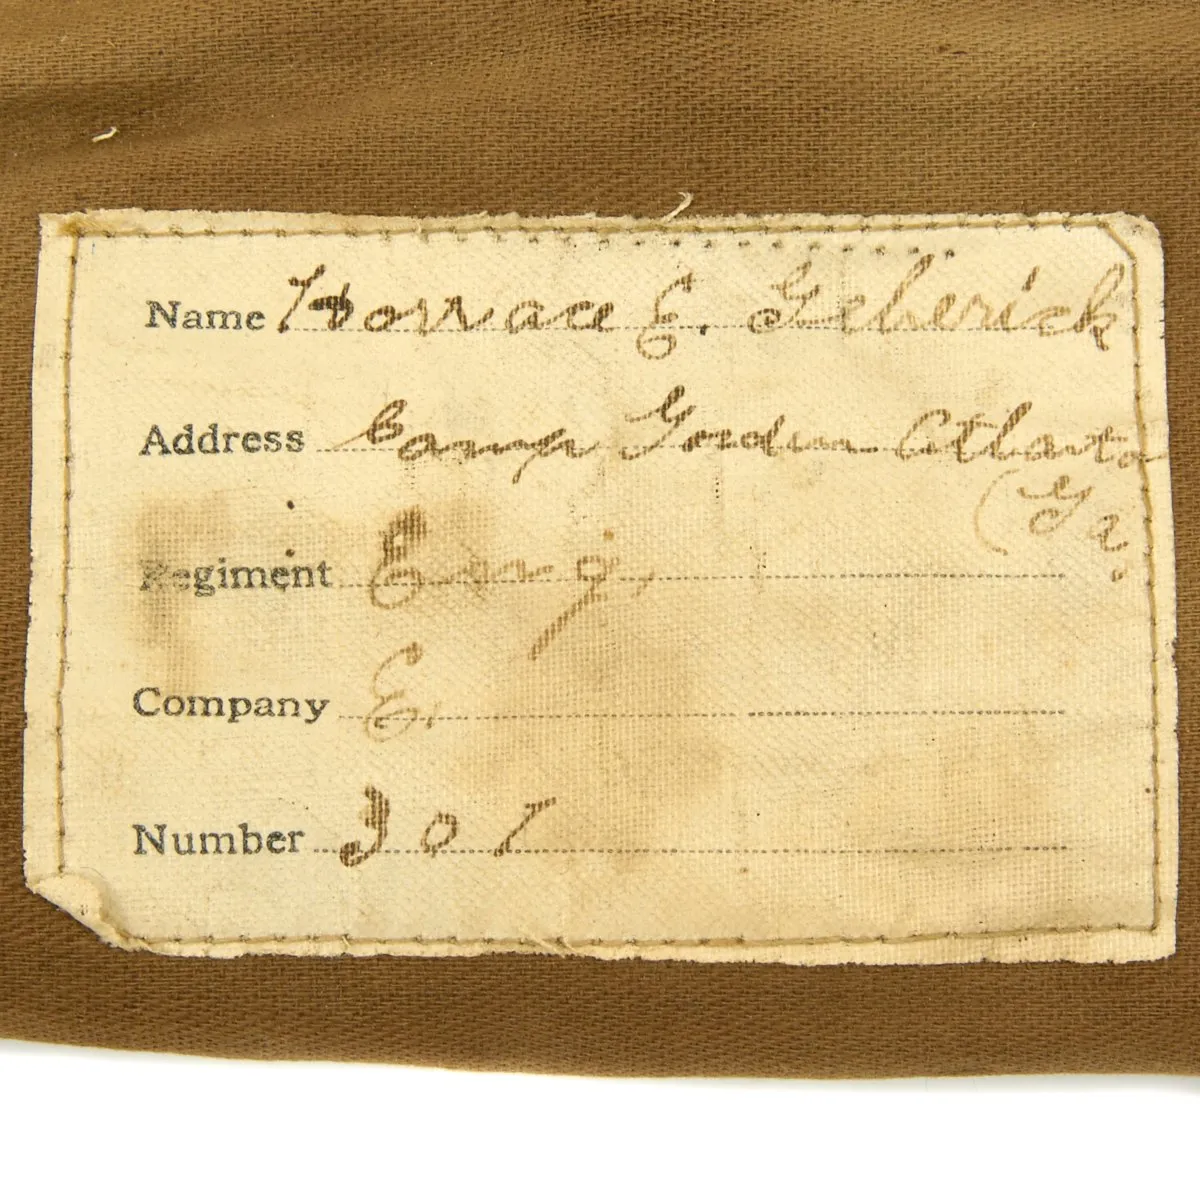 Name Horrace E. Geberick
Address Camp Gordon Atlanta
(Ga.
Regiment Eng.
Company E.
Number 307